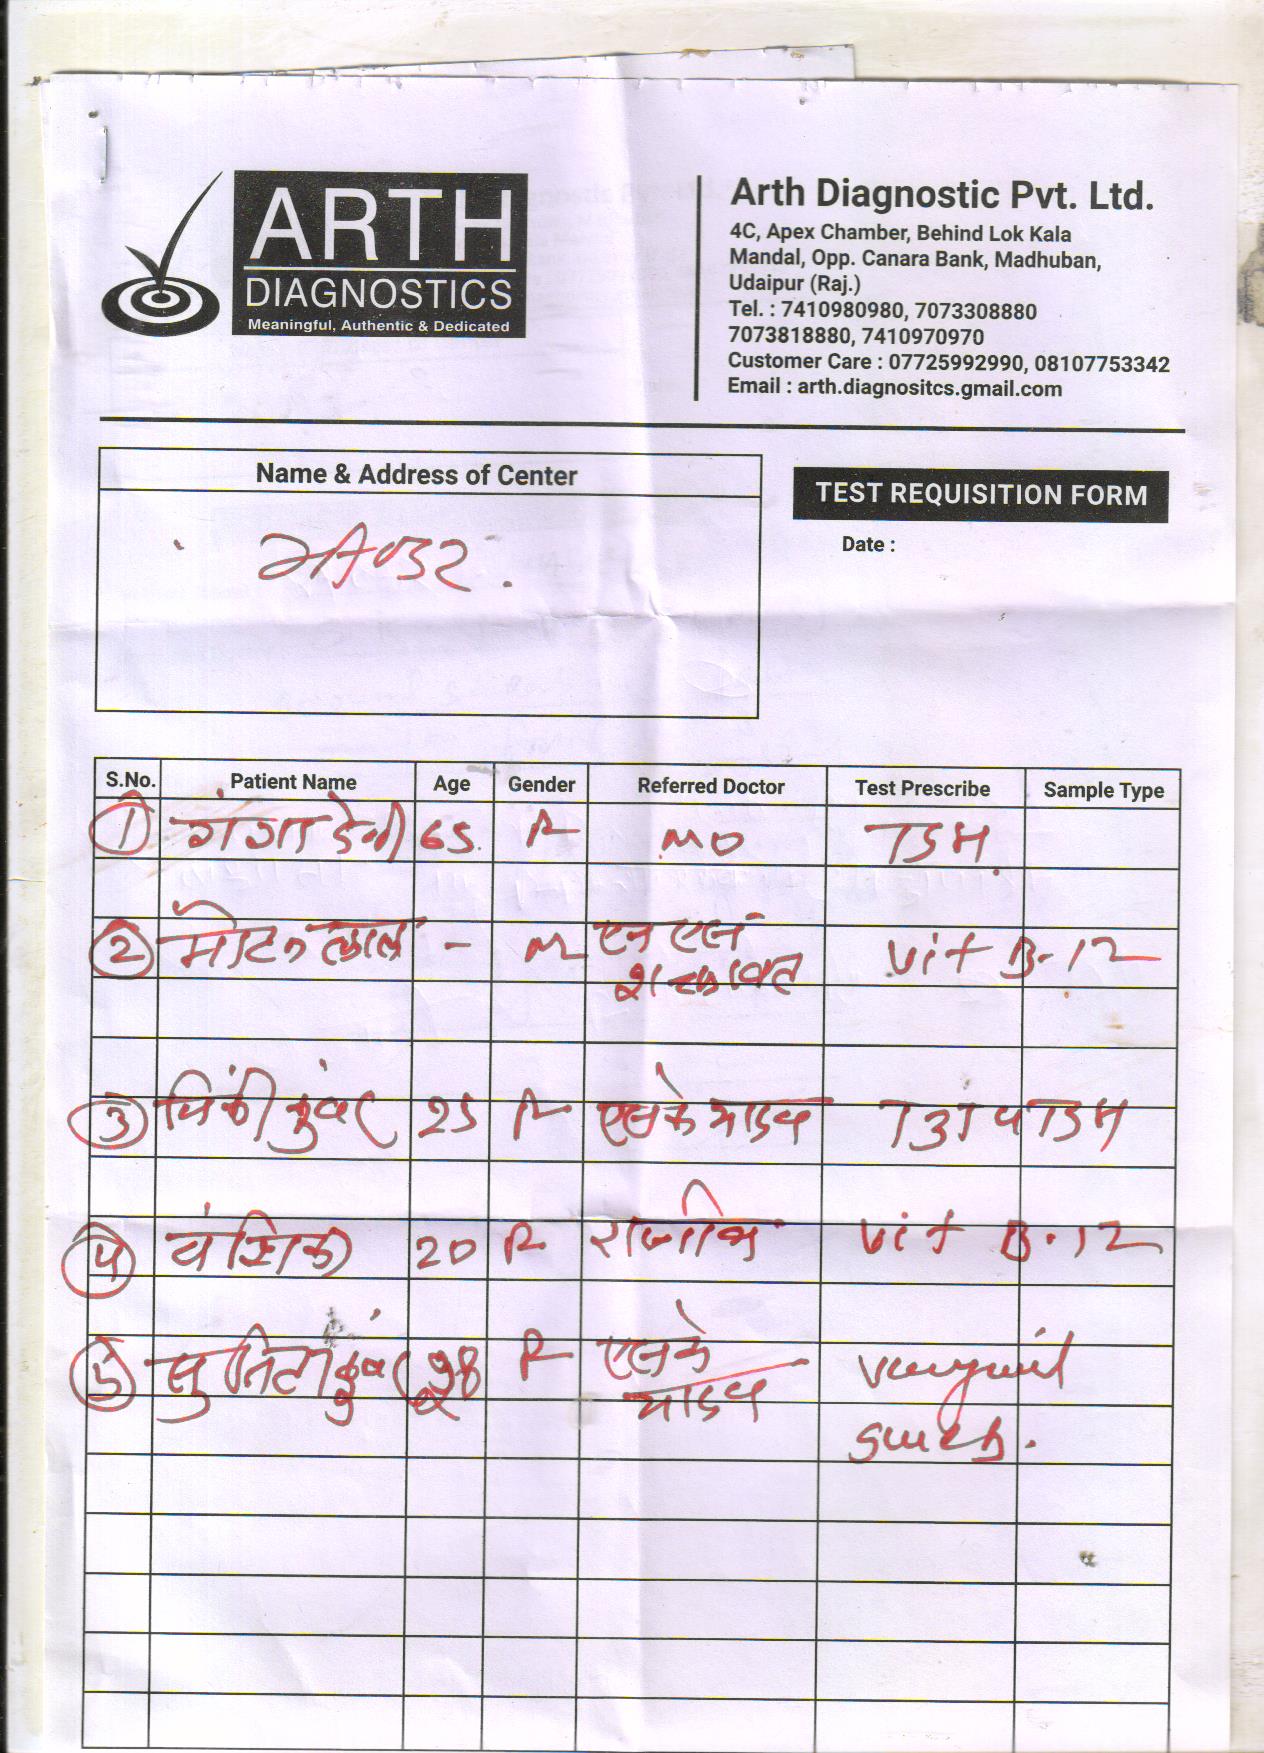 ARTH
DIAGNOSTICS
Meaningful, Authentic & Dedicated
Arth Diagnostic Pvt. Ltd.
4C, Apex Chamber, Behind Lok Kala
Mandal, Opp. Canara Bank, Madhuban,
Udaipur (Raj.)
Tel. : 7410980980, 7073308880
7073818880, 7410970970
Customer Care : 07725992990, 08107753342
Email : arth.diagnositcs.gmail.com
Name & Address of Center
TEST REQUISITION FORM
Date :
S.No. Patient Name Age Gender Referred Doctor Test Prescribe Sample Type
1 गंगा देवी 65 F MO TSH
2 लाल - M एन एल Vit B-12
शक्तावत
3 कुंवर 25 F एल के यादव T3T4TSH
4 20 F Vit B-12
5 कुंवर 28 F एल के
यादव